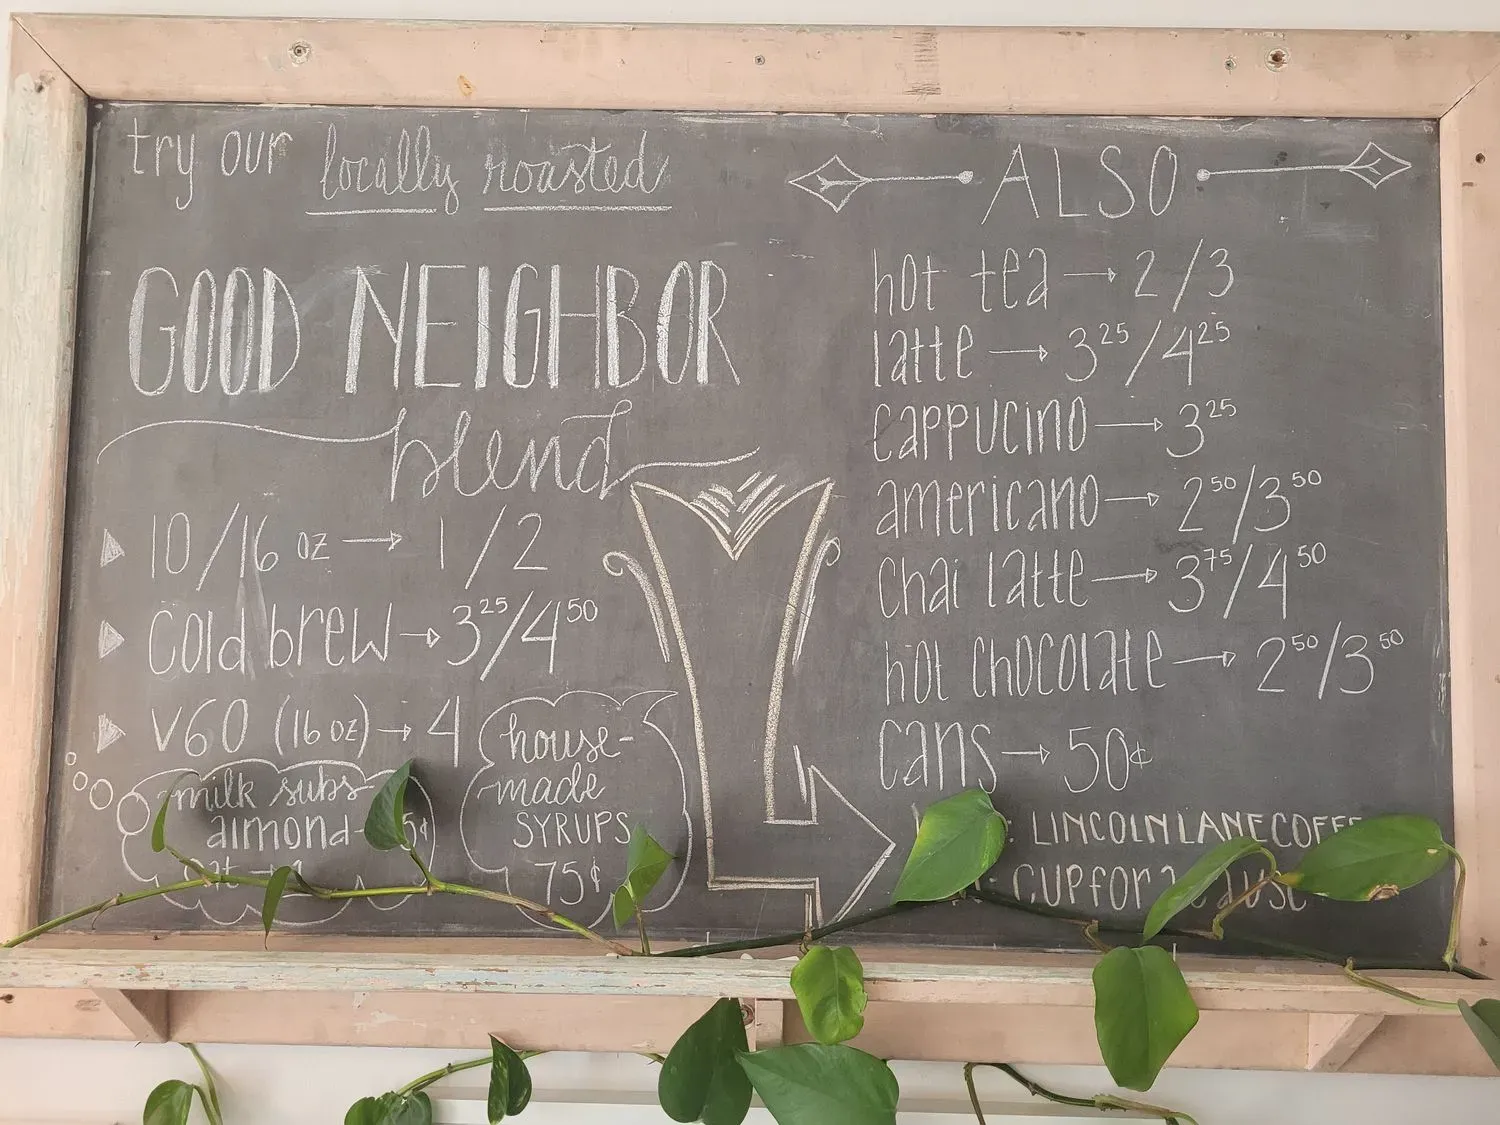 try our locally roasted
GOOD NEIGHBOR
blend
10/16 oz → 1/2
cold brew → 3²⁵/4⁵⁰
V60 (16 oz) → 4
milk subs
almond
oat
house-
made
SYRUPS
75¢
ALSO
hot tea → 2/3
latte → 3²⁵/4²⁵
cappucino → 3²⁵
americano → 2⁵⁰/3⁵⁰
chai latte → 3⁷⁵/4⁵⁰
hot chocolate → 2⁵⁰/3⁵⁰
cans → 50¢
: LINCOLNLANECOFFE
: CUPFOR